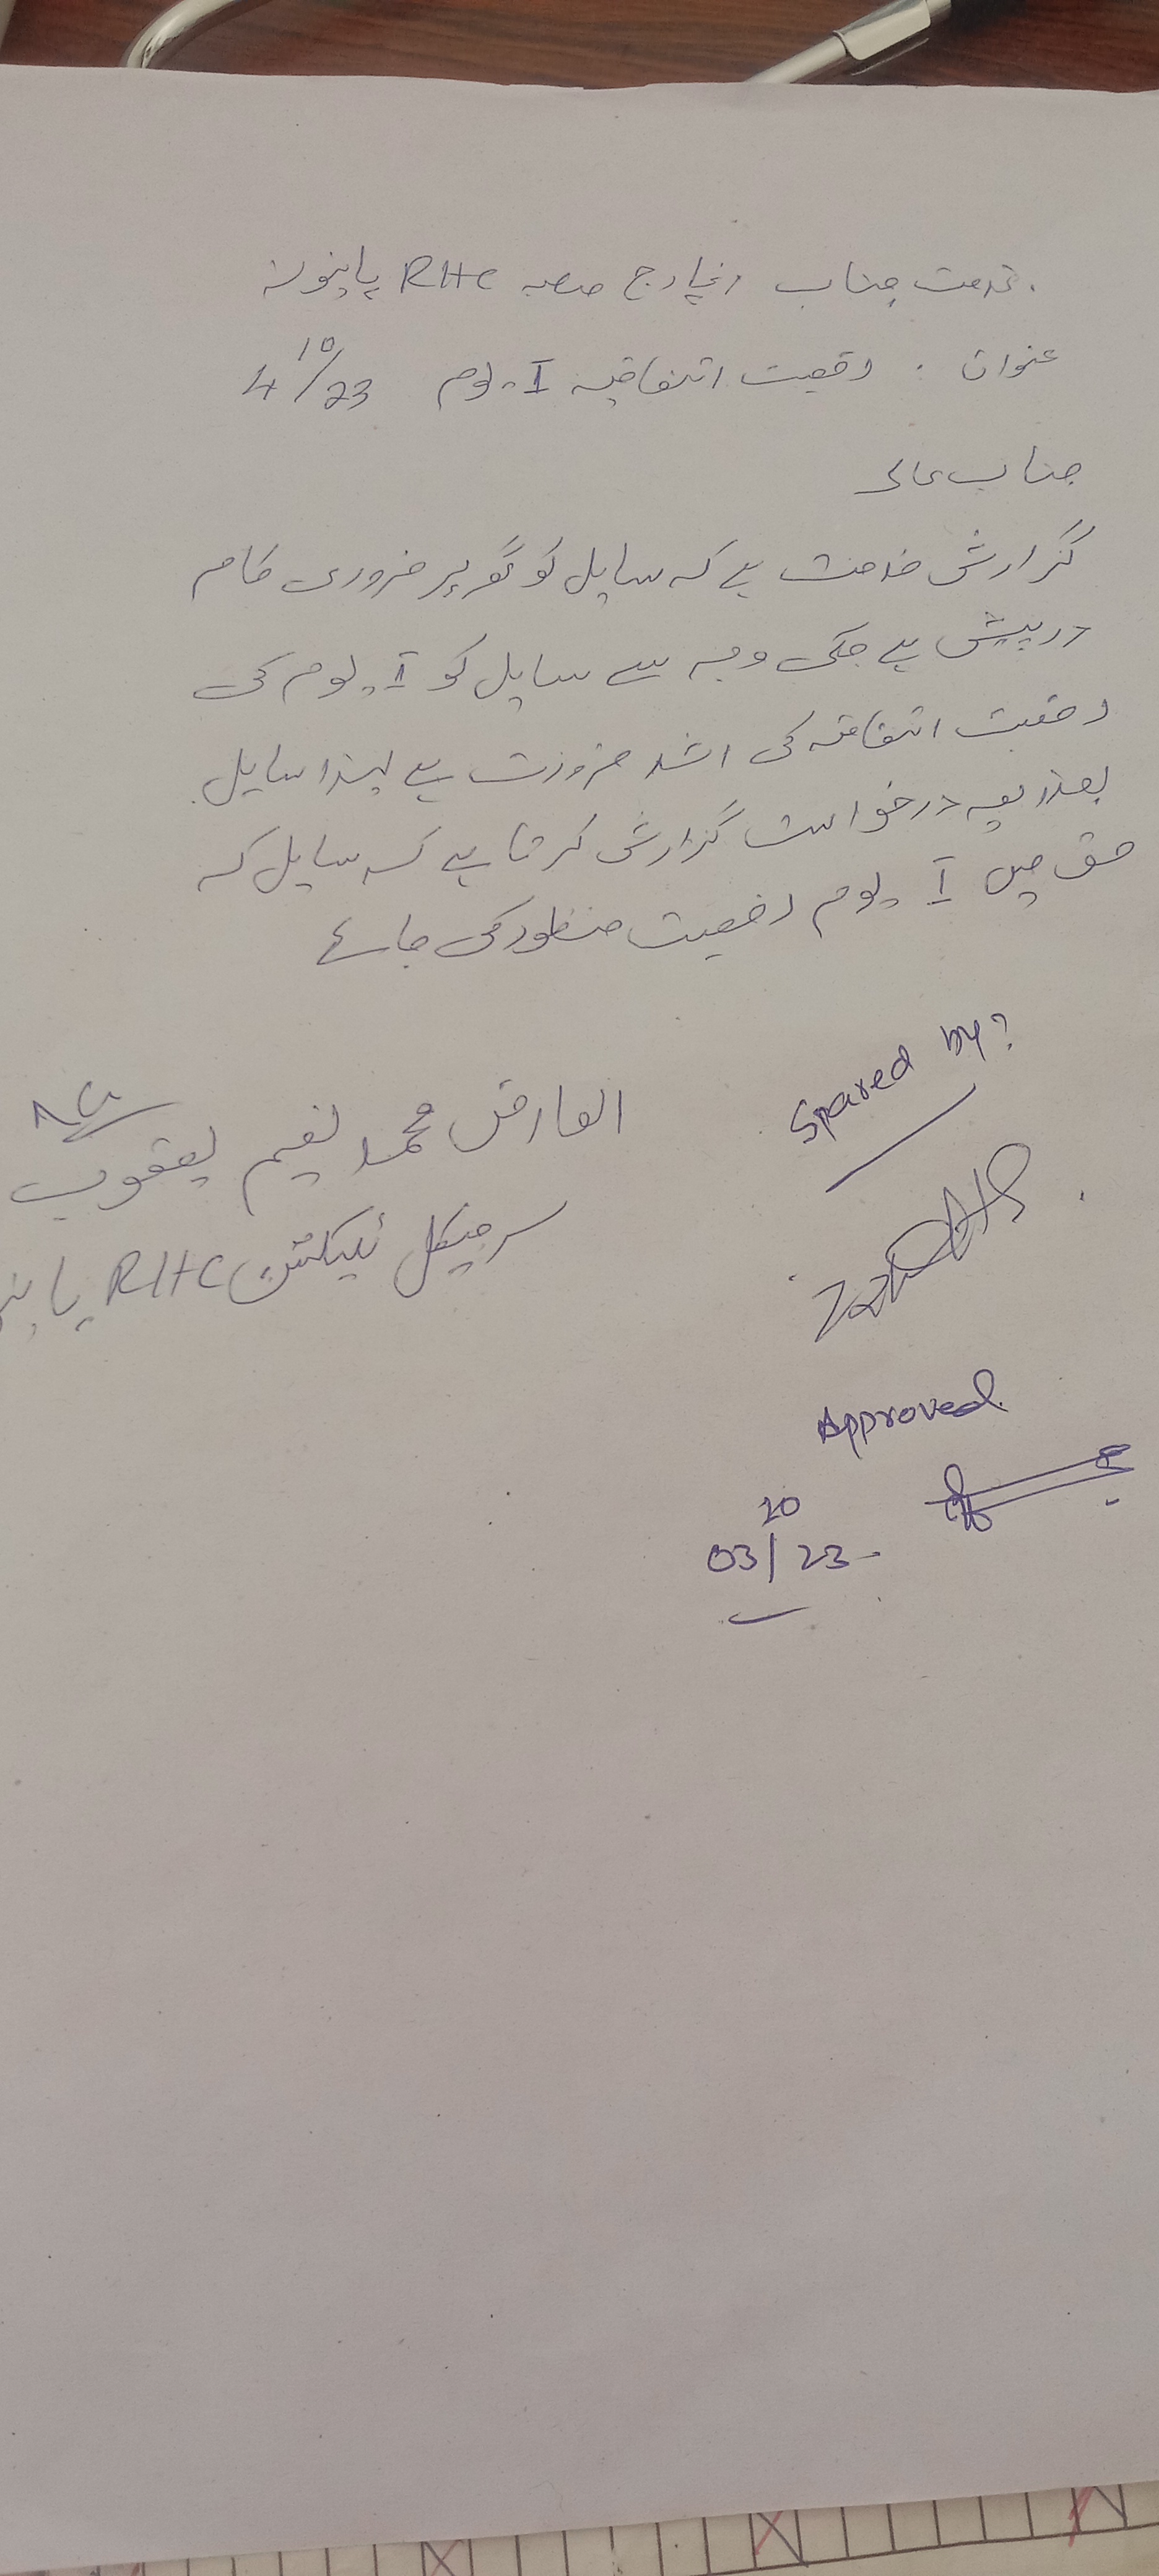 بخدمت جناب انچارج صاحب RHC پاہنوالہ
عنوان : رخصت اتفاقیہ 1 یوم 4/10/23
جناب عالی
گزارش خدمت ہے کہ سایل کو گھر پر ضروری کام
درپیش ہے جسکی وجہ سے سایل کو 1 یوم کی
رخصت اتفاقیہ کی اشد ضرورت ہے لہذا سایل
بعذریعہ درخواست گزارش کرتا ہے کہ سایل کہ
حق میں 1 یوم رخصت منظور کی جائے
Spared by?
العارض محمد نعیم یعقوب
سرجیکل ٹیکنیشن RHC
Approved
03/10/23